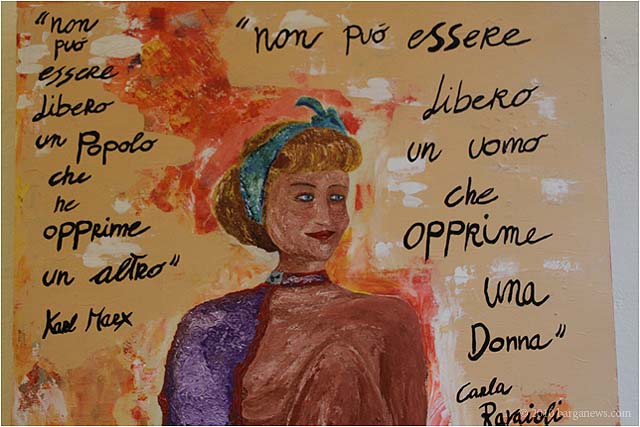 "non
può
essere
libero
un Popolo
che
ne
opprime
un altro"
Karl Marx
"non può essere
libero
un uomo
che
opprime
una
Donna"
Carla
Ravaioli
barganews.com